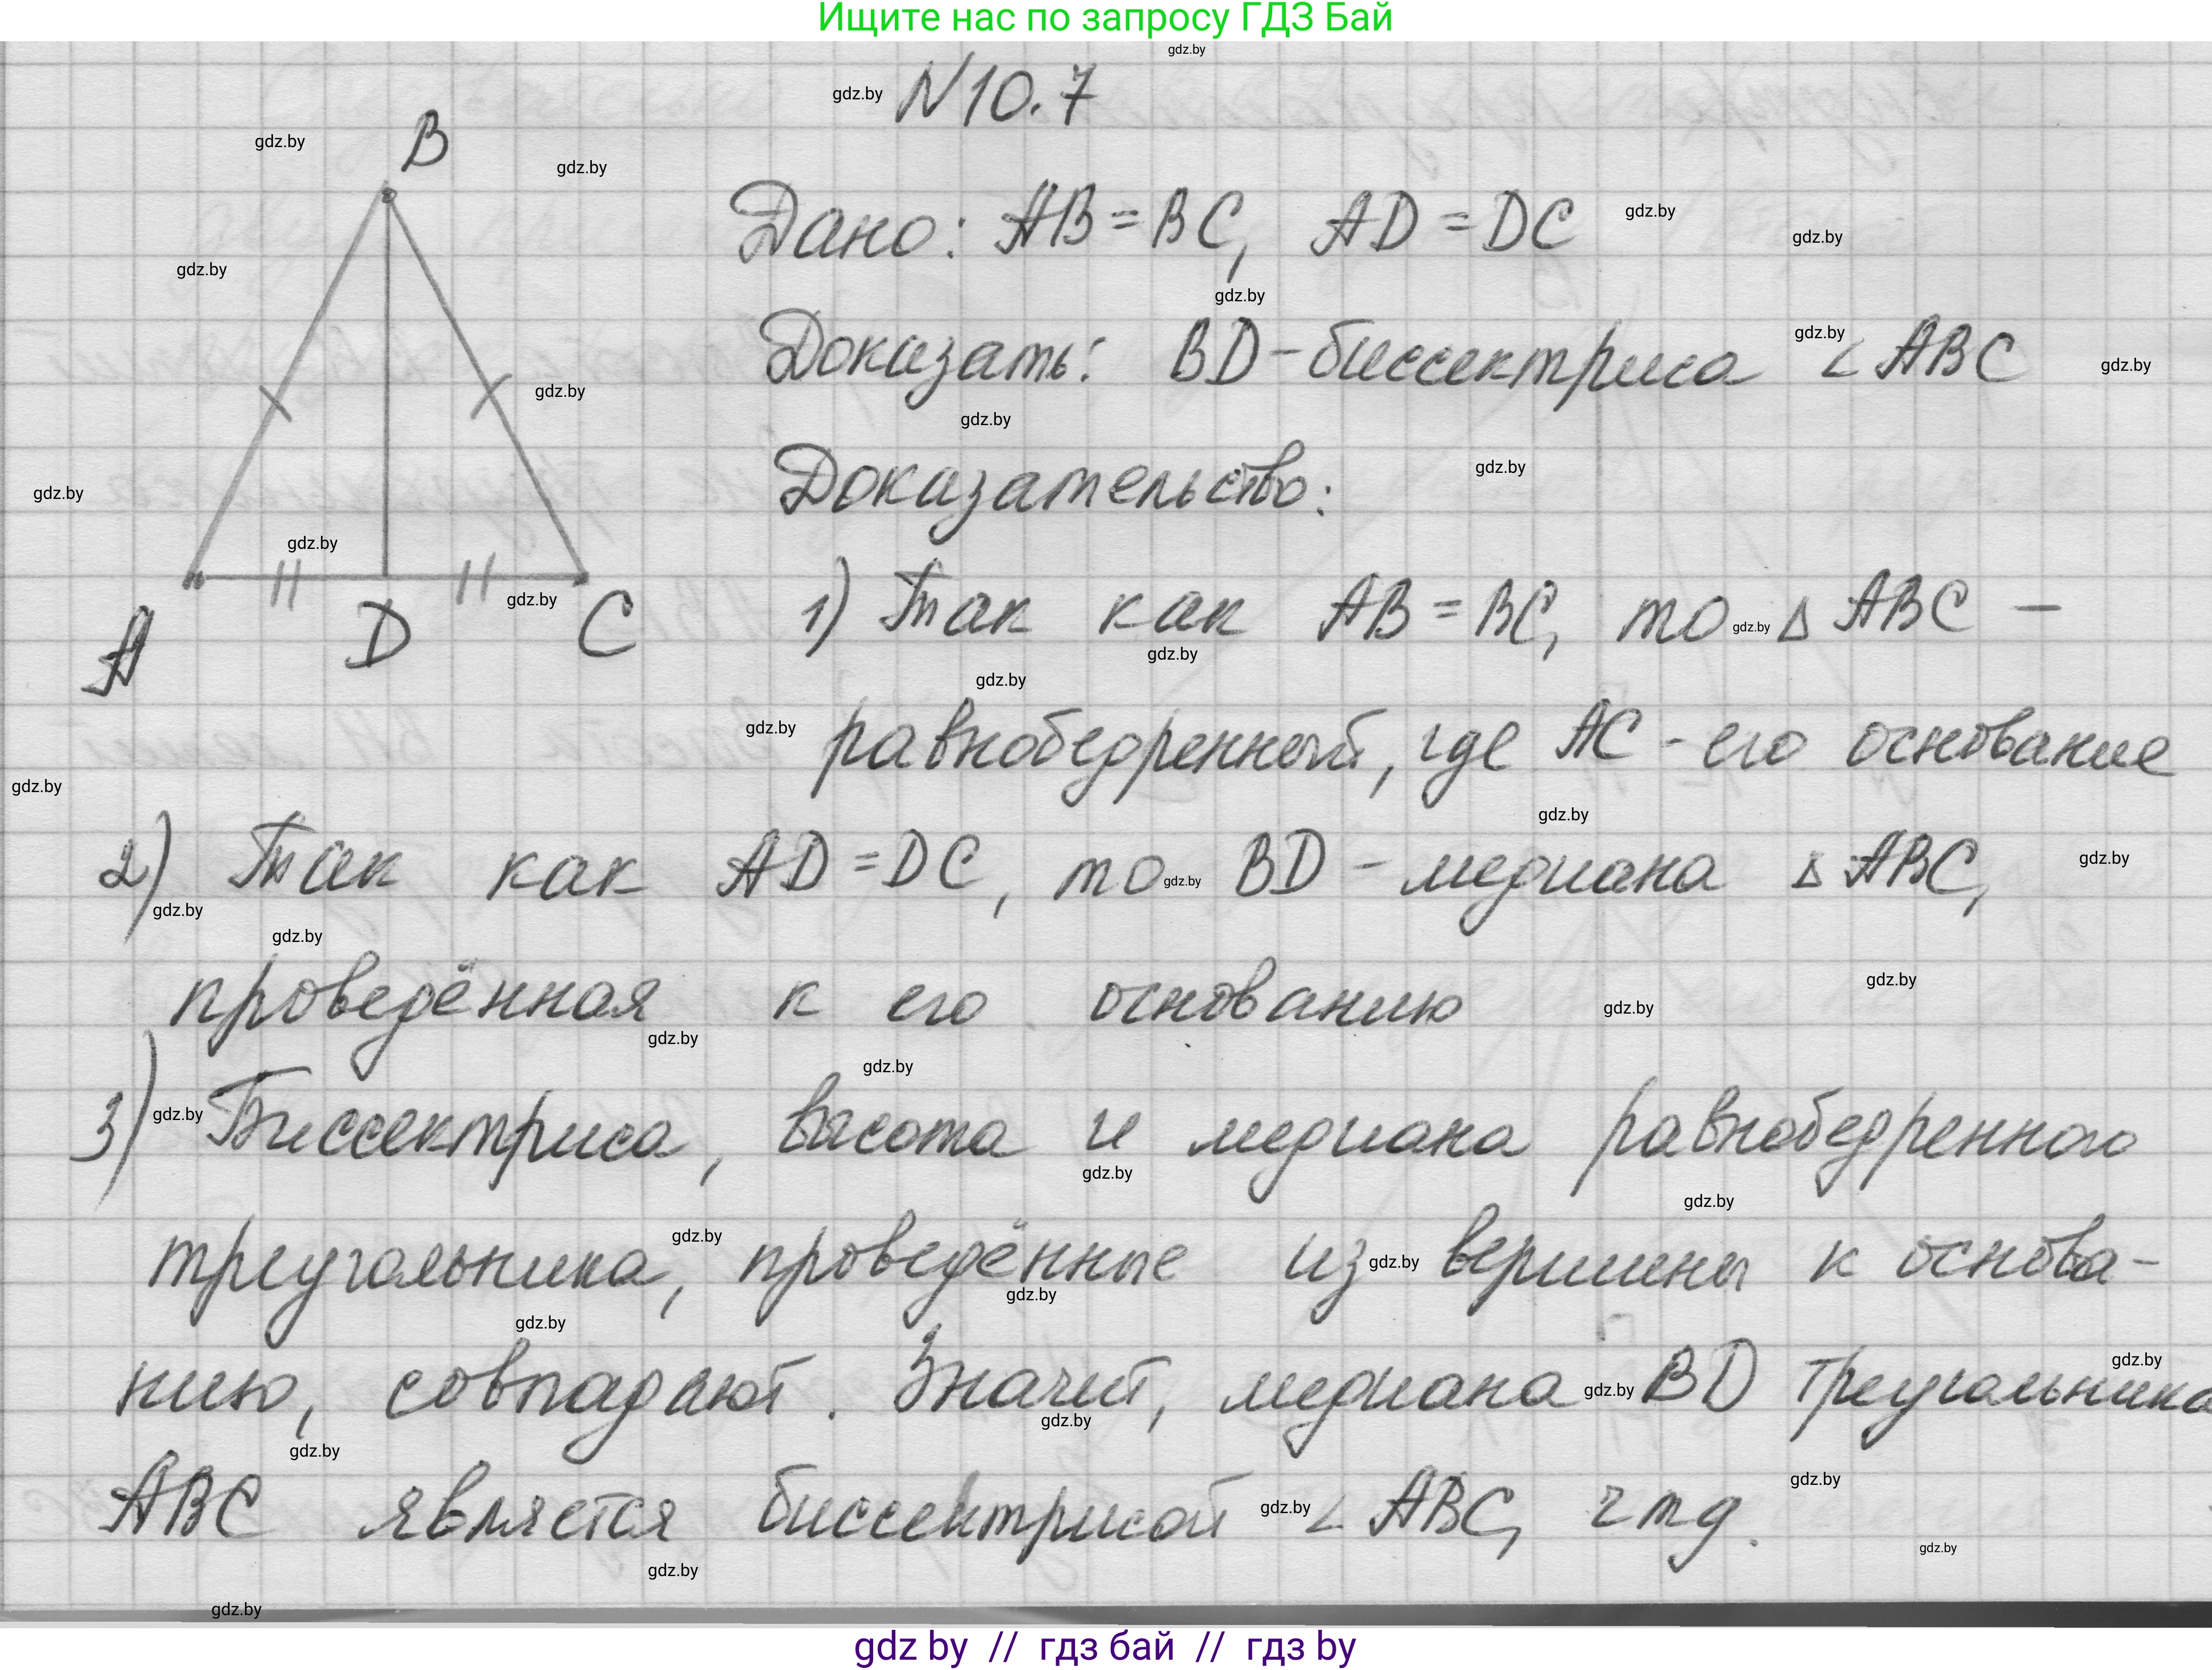 Ищите нас по запросу ГДЗ Бай
N10.7
B
Дано: AB = BC, AD = DC
Доказать: BD - биссектриса ∠ABC
Доказательство:
A D C
1) Так как AB = BC, то △ABC –
равнобедренный, где AC - его основание
2) Так как AD = DC, то BD - медиана △ABC,
проведённая к его основанию
3) Биссектриса, высота и медиана равнобедренного
треугольника, проведённые из вершины к основа-
нию, совпадают. Значит, медиана BD треугольника
ABC является биссектрисой ∠ABC, чтд.
gdz by // гдз бай // гдз by